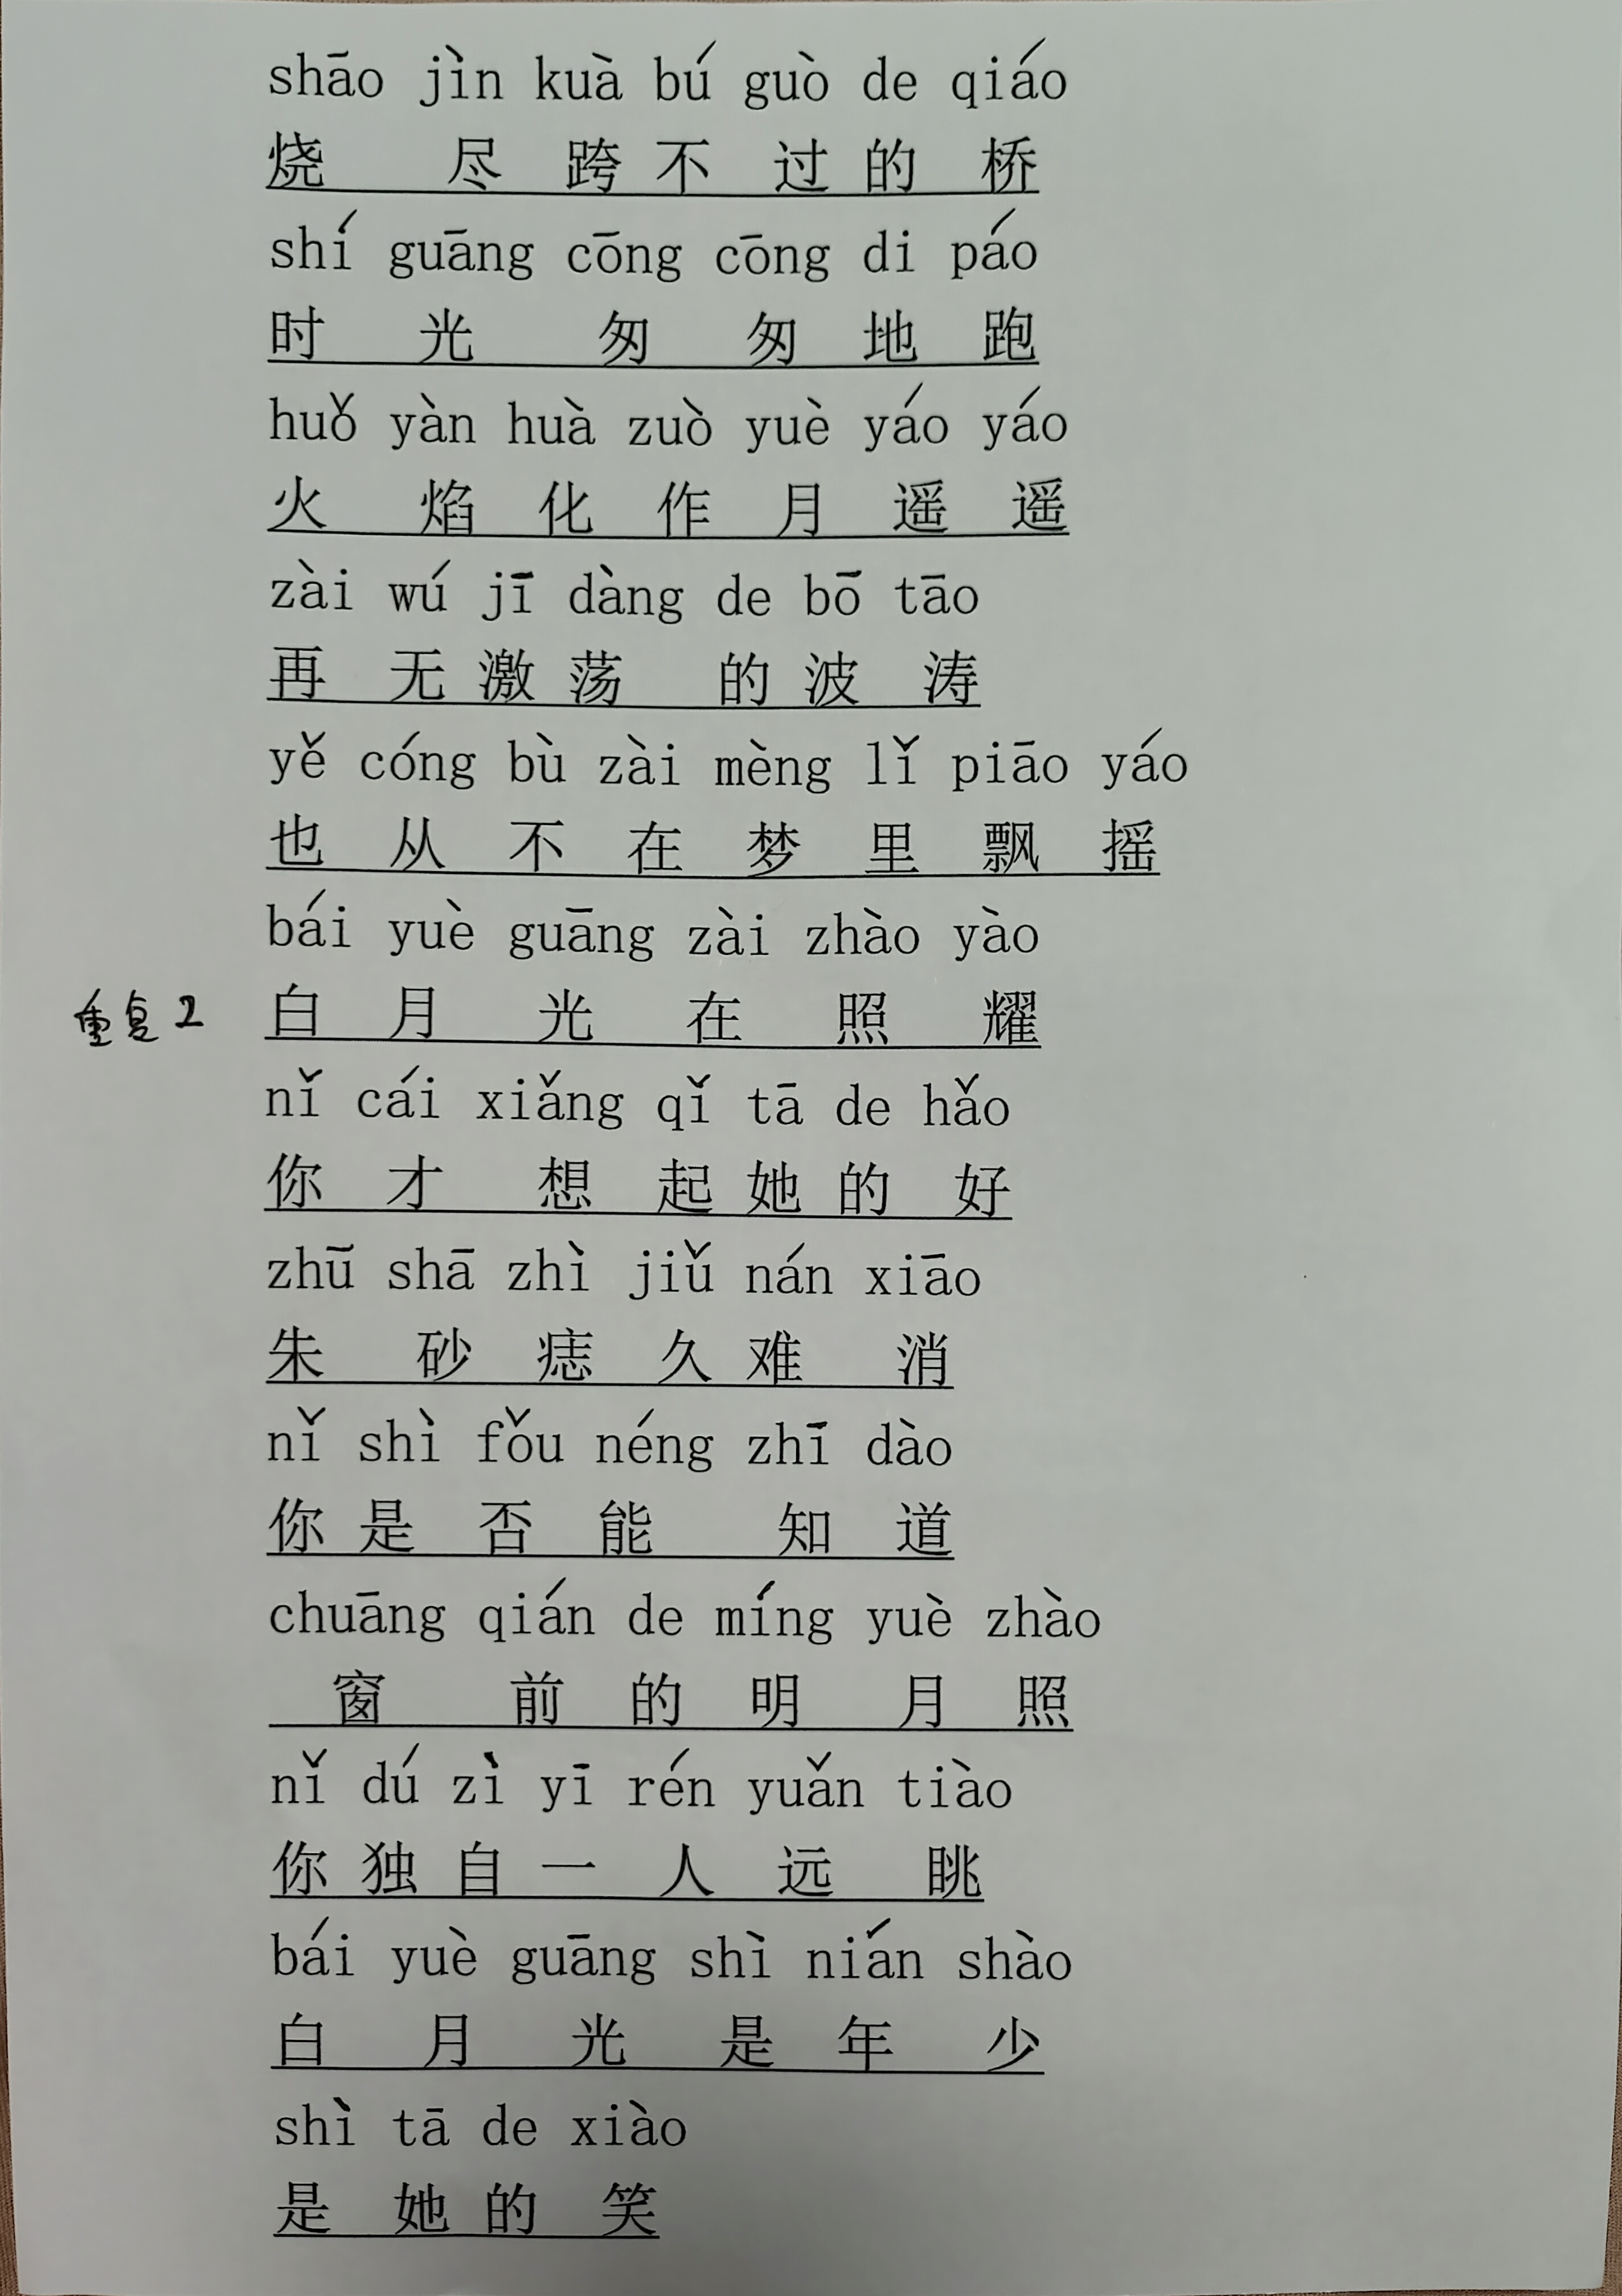 shāo jìn kuà bú guò de qiáo
烧 尽 跨 不 过 的 桥
shí guāng cōng cōng di páo
时 光 匆 匆 地 跑
huǒ yàn huà zuò yuè yáo yáo
火 焰 化 作 月 遥 遥
zài wú jī dàng de bō tāo
再 无 激 荡 的 波 涛
yě cóng bù zài mèng lǐ piāo yáo
也 从 不 在 梦 里 飘 摇
bái yuè guāng zài zhào yào
重复2 白 月 光 在 照 耀
nǐ cái xiǎng qǐ tā de hǎo
你 才 想 起 她 的 好
zhū shā zhì jiǔ nán xiāo
朱 砂 痣 久 难 消
nǐ shì fǒu néng zhī dào
你 是 否 能 知 道
chuāng qián de míng yuè zhào
窗 前 的 明 月 照
nǐ dú zì yī rén yuǎn tiào
你 独 自 一 人 远 眺
bái yuè guāng shì nián shào
白 月 光 是 年 少
shì tā de xiào
是 她 的 笑